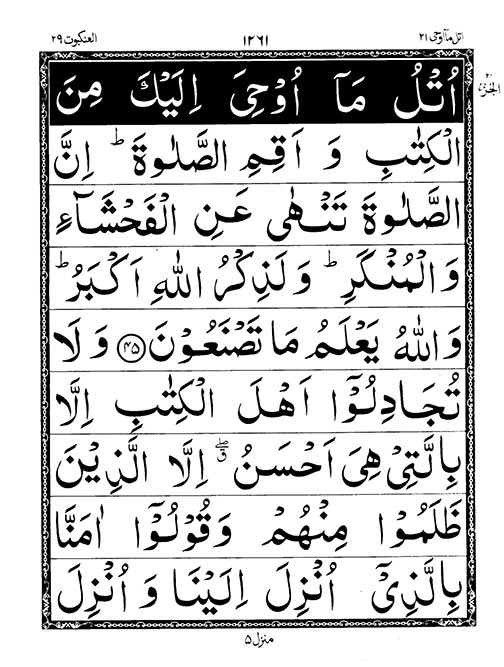 اتل مآ اوحی ۲۱
۱۲۶۱
العنکبوت ۲۹
الجزء
اُتْلُ مَآ اُوْحِیَ اِلَیْكَ مِنَ
الْكِتٰبِ وَ اَقِمِ الصَّلٰوةَ ؕ اِنَّ
الصَّلٰوةَ تَنْهٰی عَنِ الْفَحْشَآءِ
وَ الْمُنْكَرِ ؕ وَ لَذِكْرُ اللّٰهِ اَكْبَرُ ؕ
وَ اللّٰهُ یَعْلَمُ مَا تَصْنَعُوْنَ ﴿۴۵﴾ وَ لَا
تُجَادِلُوْۤا اَهْلَ الْكِتٰبِ اِلَّا
بِالَّتِیْ هِیَ اَحْسَنُ ۖۗ اِلَّا الَّذِیْنَ
ظَلَمُوْا مِنْهُمْ وَ قُوْلُوْۤا اٰمَنَّا
بِالَّذِیْۤ اُنْزِلَ اِلَیْنَا وَ اُنْزِلَ
منزل ۵